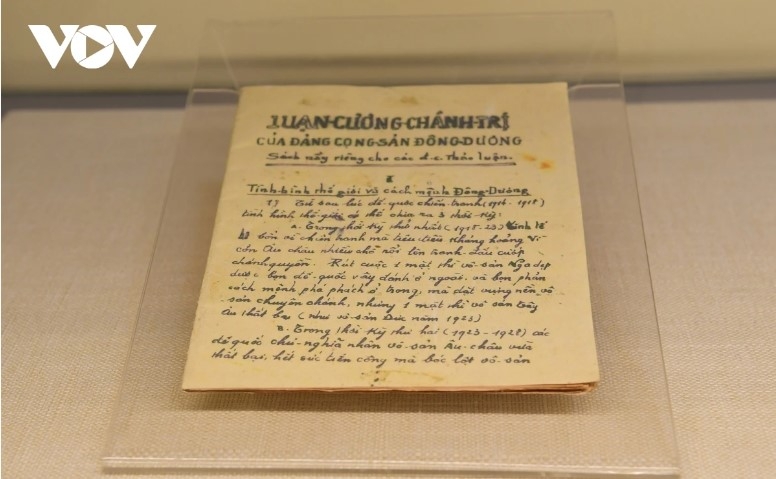 VOV
LUẬN-CƯƠNG-CHÁNH-TRỊ
CỦA ĐẢNG CỘNG-SẢN ĐÔNG-DƯƠNG
Sách nầy riêng cho các đ.c. thảo luận.
I
Tình-hình thế giới và cách mệnh Đông-Dương
1) Từ sau lúc đế quốc chiến-tranh (1914-1918)
tình hình thế-giới có thể chia ra 3 thời-kỳ:
A. Trong thời kỳ thứ nhất (1918-23) kinh tế
bổn vì chiến tranh mà tiêu điều khủng hoảng vì
còn Âu châu nhiều chỗ nổi lên tranh đấu cướp
chánh quyền. Rút cuộc 1 mặt thì vô-sản Nga dẹp
được bọn đế-quốc vây đánh ở ngoài, và bọn phản
cách mệnh phá phách ở trong, mà đặt vững nền vô
sản chuyên chánh, nhưng 1 mặt thì vô sản Tây
Âu thất bại (như vô-sản Đức năm 1923)
B. Trong thời kỳ thứ hai (1923-1928) các
đế quốc chủ-nghĩa nhân vô-sản Âu-châu vừa
thất bại, hết sức tiến công mà bóc lột vô-sản